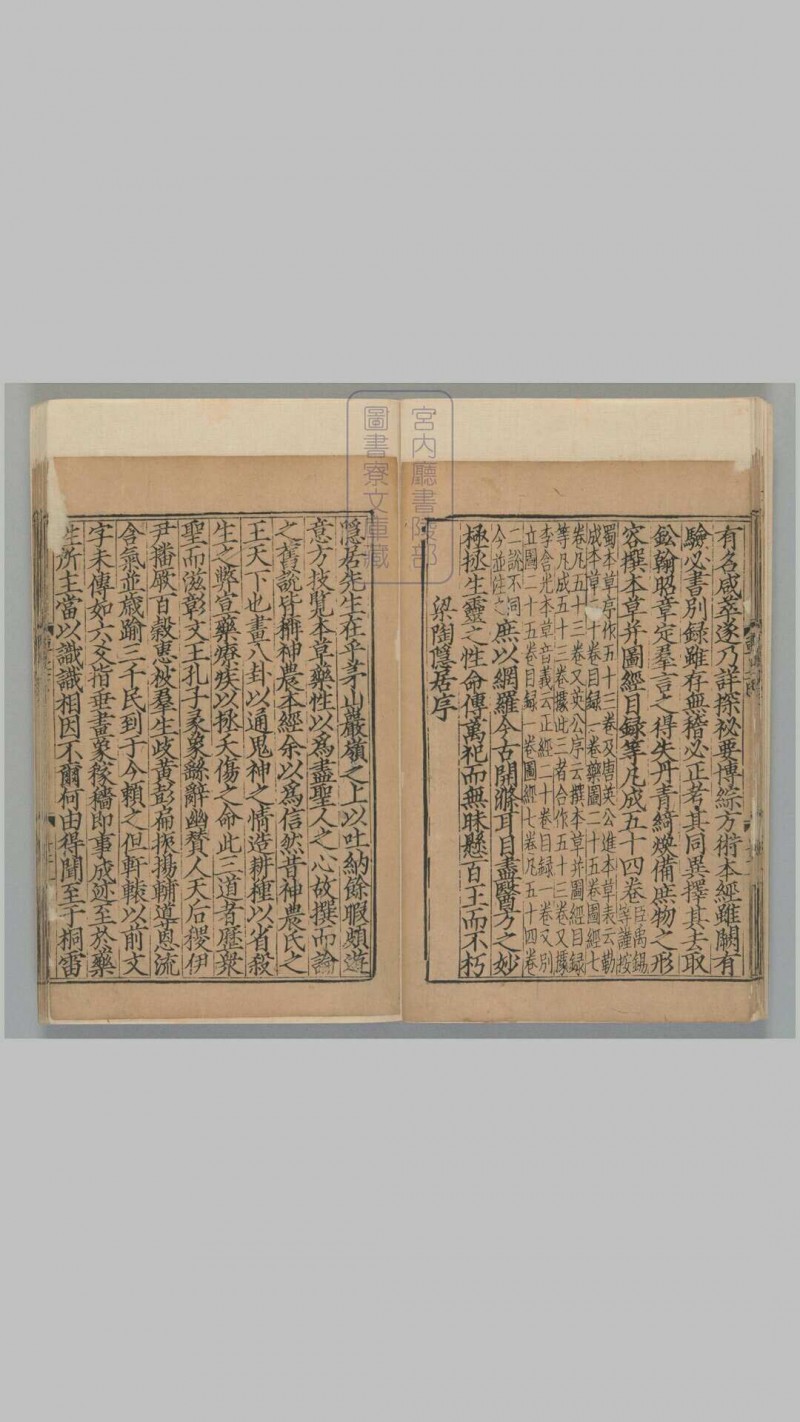 宮内廳書陵部
圖書寮文庫藏
有名咸萃遂乃詳探祕要博綜方術本經雖闕有
驗必書別録雖存無稽必正考其同異擇其去取
鈆翰昭章定羣言之得失丹青綺煥備庶物之形
容撰本草并圖經目録等凡成五十四卷臣禹錫等謹按
蜀本草序作五十三卷及唐英公進本草表云勒
成本草二十卷目録一卷藥圖二十五卷圖經七
卷凡五十三卷又英公序云撰本草并圖經目録
等凡成五十三卷據此三者合作五十三卷又據
李含光本草音義云正經二十卷目録一卷又別
立圖二十五卷目録一卷圖經七卷凡五十四卷
二説不同今並注之庶以網羅今古開滌耳目盡醫方之妙
極拯生靈之性命傳萬祀而無昧懸百王而不朽
梁陶隱居序
隱居先生在乎茅山巖嶺之上以吐納餘暇頗遊
意方技覽本草藥性以爲盡聖人之心故撰而論
之舊説皆稱神農本經余以爲信然昔神農氏之
王天下也畫八卦以通鬼神之情造耕種以省殺
生之弊宣藥療疾以拯夭傷之命此三道者歷衆
聖而滋彰文王孔子彖象繇辭幽贊人天后稷伊
尹播厥百穀惠被羣生歧黃彭扁振揚輔導恩流
含氣並歲踰三千民到于今賴之但軒轅以前文
字未傳如六爻指垂畫象稼穡即事成迹至於藥
性所主當以識識相因不爾何由得聞至于桐雷